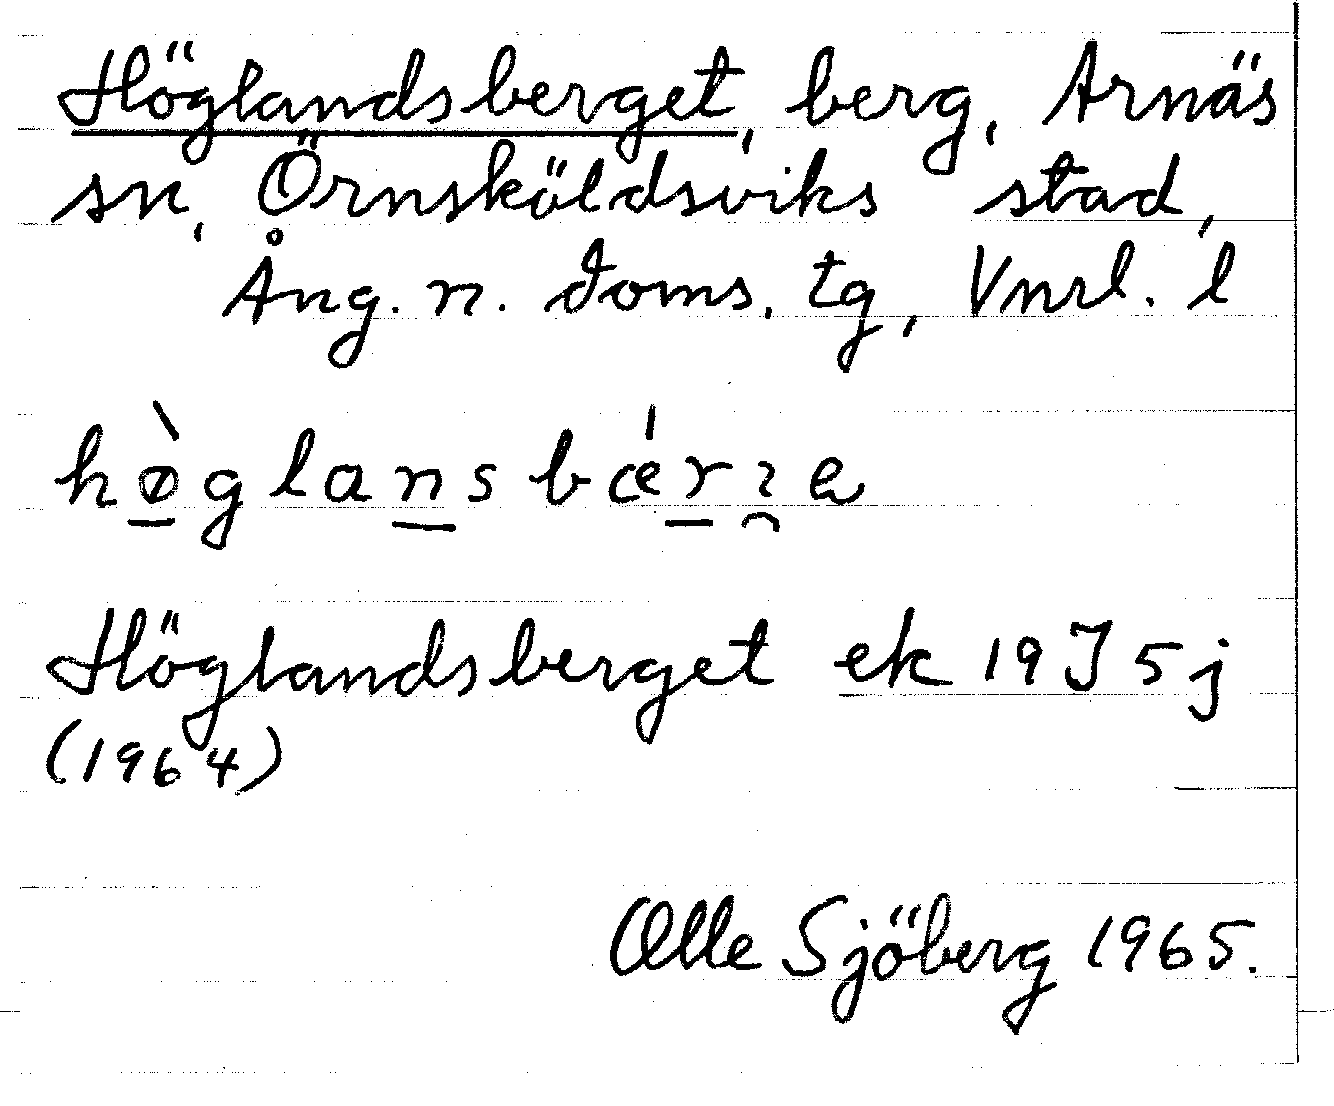 Höglandsberget, berg, Arnäs
sn, Örnsköldsviks stad,
Ång. n. doms. tg, Vnrl. l
hø̀glansbǽrɂe
Höglandsberget ek 19J5j
(1964)
Olle Sjöberg 1965.